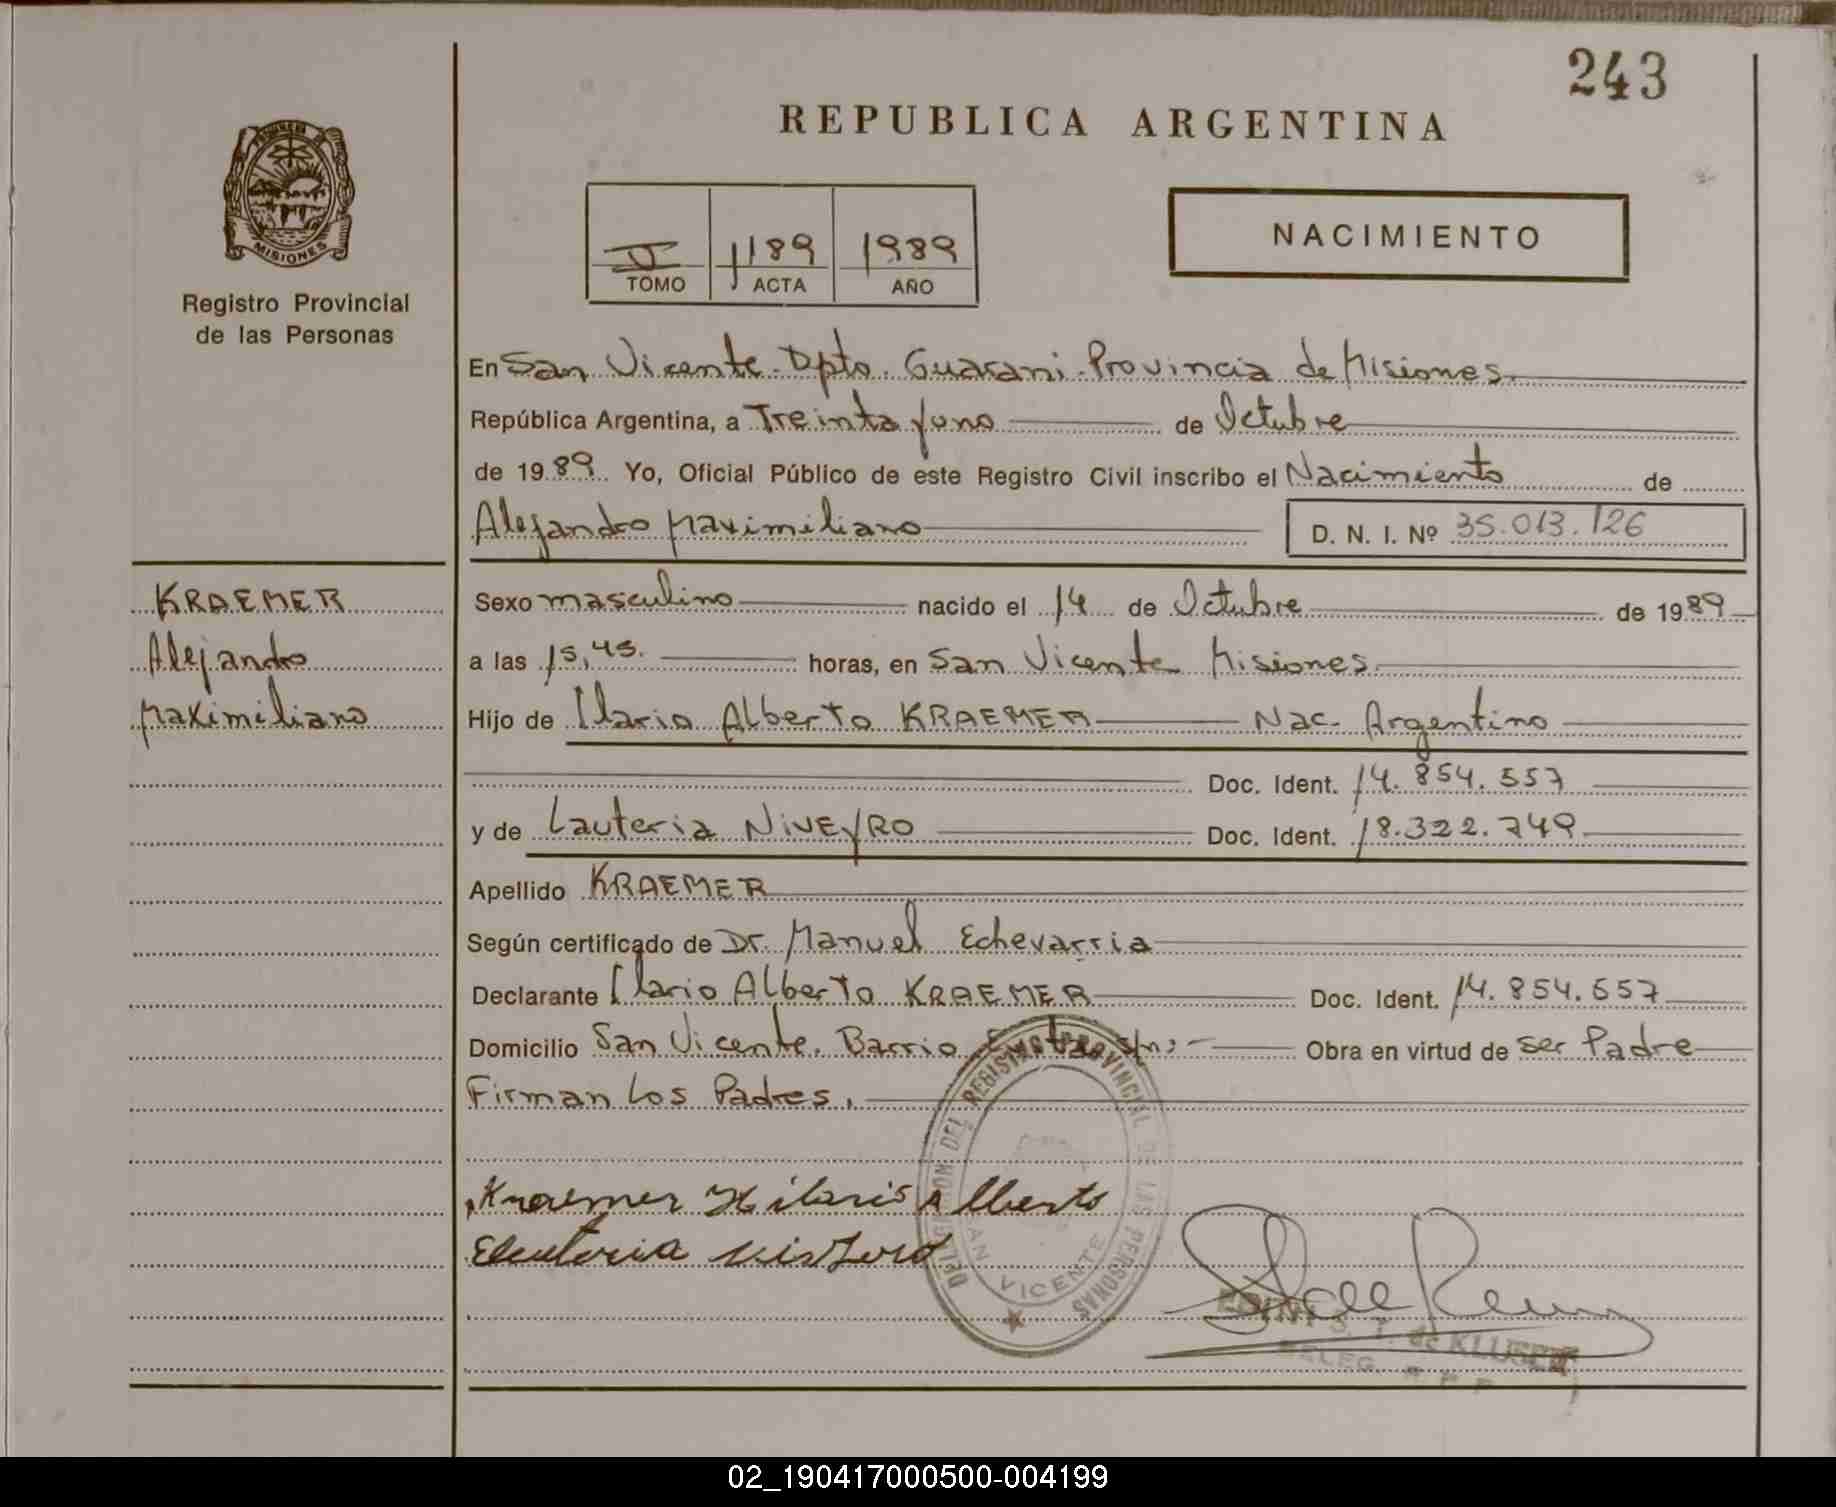 243
REPUBLICA ARGENTINA
MISIONES
Registro Provincial
de las Personas
TOMO 1189 ACTA 1989 AÑO
NACIMIENTO
En San Vicente. Dpto. Guarani. Provincia de Misiones.
República Argentina, a Treinta y uno de Octubre
de 1989 Yo, Oficial Público de este Registro Civil inscribo el Nacimiento de
Alejandro Maximiliano D. N. I. Nº 35.013.126
KRAEMER
Alejandro
Maximiliano
Sexo masculino nacido el 14 de Octubre de 1989
a las 15,45. horas, en San Vicente Misiones.
Hijo de Ilario Alberto KRAEMER Nac. Argentino
Doc. Ident. 14.854.557
y de Lauteria NIVEYRO Doc. Ident. 18.322.749
Apellido KRAEMER
Según certificado de Dr. Manuel Echevarria
Declarante Ilario Alberto KRAEMER Doc. Ident. 14.854.557
Domicilio San Vicente. Barrio s/n; Obra en virtud de ser Padre
Firman Los Padres.
Kraemer Hilario Alberto
Eleuteria
DELEGACION DEL REGISTRO PROVINCIAL DE LAS PERSONAS
SAN VICENTE
S. T. de
DELEG.
02_190417000500-004199